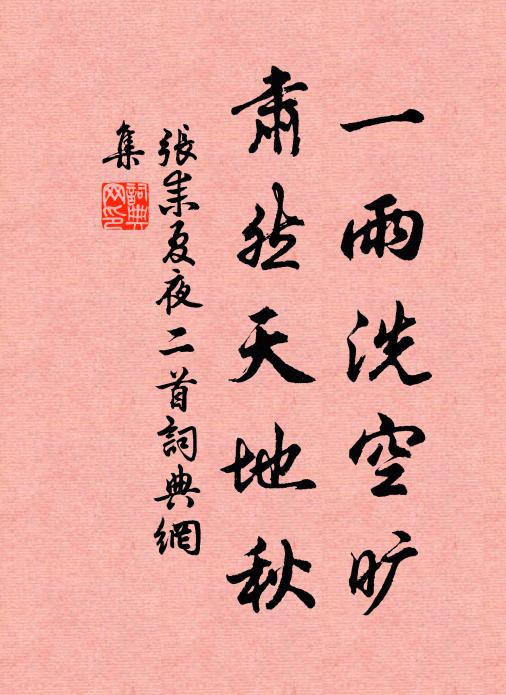 一雨洗空旷
肅然天地秋
張耒夏夜二首詞典網
集
詞典
网印